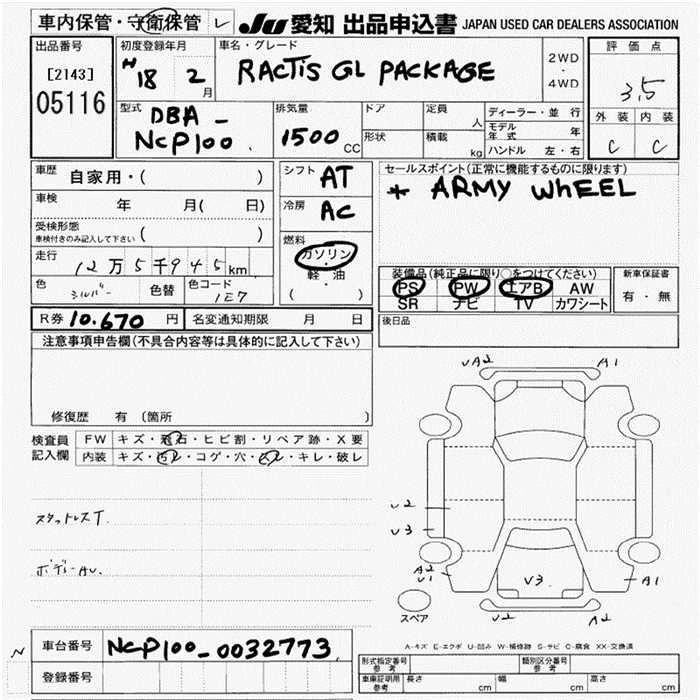 車内保管・守衛保管 レ JU 愛知 出品申込書 JAPAN USED CAR DEALERS ASSOCIATION
出品番号 初度登録年月 車名・グレード 2WD・4WD 評価点
[2143] 05116
18 2月 RACTIS GL PACKAGE 3.5
外装 内装
C C
型式 DBA - NCP100. 排気量 1500 CC ドア 形状 定員 人 積載 kg ディーラー・並行 モデル年式 年 ハンドル 左・右
車歴 自家用・( ) シフト AT セールスポイント(正常に機能するものに限ります)
* ARMY WHEEL
車検 年 月( 日) 冷房 AC
受検形態 車検付きのみ記入して下さい ( )
走行 12万5千945km 燃料 ガソリン・軽油 ( )
装備品(純正品に限り○をつけてください) 新車保証書
PS PW エアB AW 有・無
SR ナビ TV カワシート
色 シルバー 色替 色コード 1E7
R券 10.670 円 名変通知期限 月 日 後日品
注意事項申告欄(不具合内容等は具体的に記入して下さい)
修復歴 有 (箇所
検査員記入欄 FW キズ・飛石・ヒビ割・リペア跡・X要
内装 キズ・汚レ・コゲ・穴・スレ・キレ・破レ
スタットレスT.
ボデーAU.
UA2 A1
U2
U3
A2 U1 U3. A1
スペア U2 A2
A-キズ E-エクボ U-凹み W-補修跡 S-サビ C-腐食 XX-交換済
N 車台番号 NCP100-0032773.
登録番号
形式指定番号 参考 類別区分番号 参考
車庫証明用 参考 長さ cm 幅 cm 高さ cm